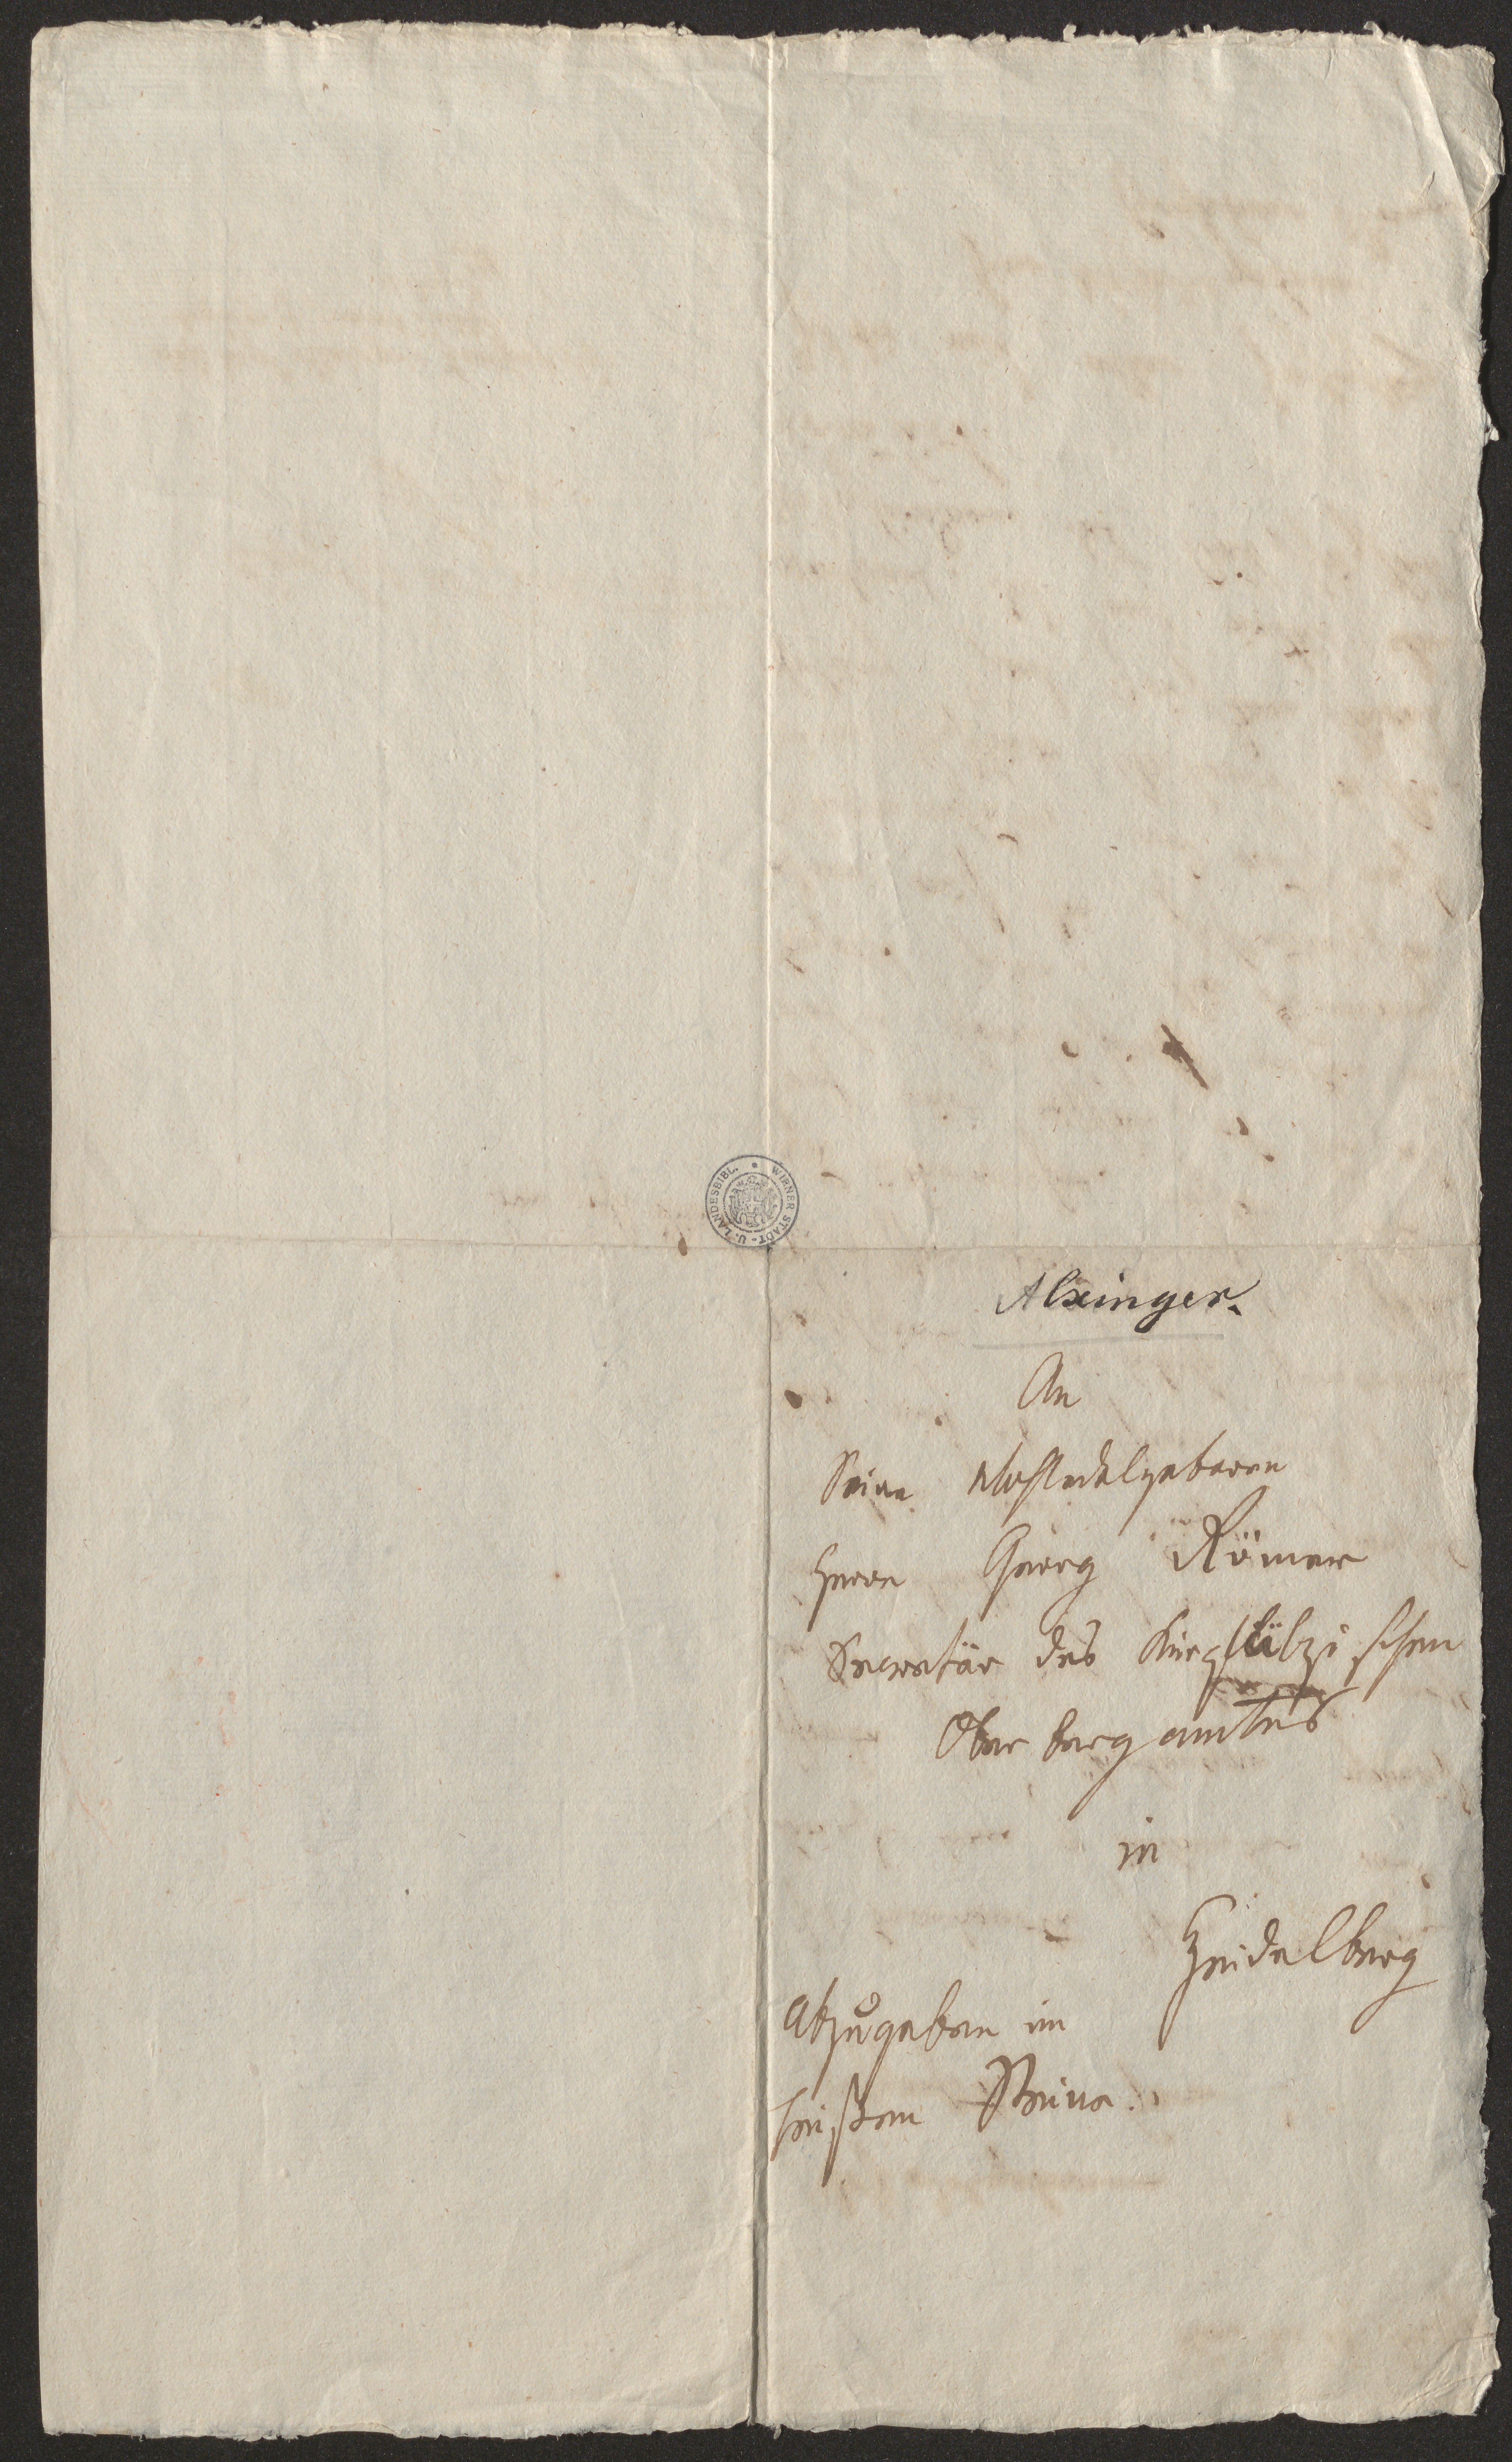 WIENER STADT- U. LANDESBIBL.
Alxinger.
An
Seine Wohledelgeboren
Herrn Georg Römer
Secretär des Kurpfälzischen
Oberbergamtes
in
Heidelberg
Abzugeben im